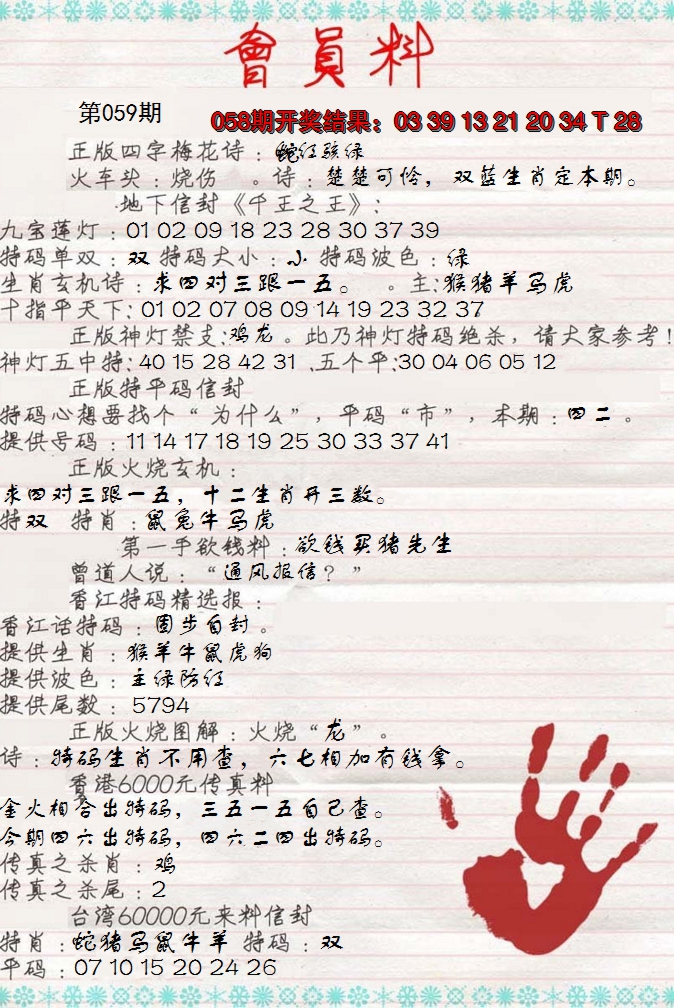 會員料
第059期
058期开奖结果：03 39 13 21 20 34 T 28
正版四字梅花诗：蛇红骇绿
火车头：烧伤 。诗：楚楚可怜，双蓝生肖定本期。
地下信封《千王之王》：
九宝莲灯：01 02 09 18 23 28 30 37 39
特码单双：双 特码大小：小 特码波色：绿
生肖玄机诗：求四对三跟一五。 。主:猴猪羊马虎
十指平天下: 01 02 07 08 09 14 19 23 32 37
正版神灯禁支:鸡龙。此乃神灯特码绝杀，请大家参考!
神灯五中特: 40 15 28 42 31 .五个平:30 04 06 05 12
正版特平码信封
特码心想要找个“为什么”，平码“市”，本期：四二。
提供号码：11 14 17 18 19 25 30 33 37 41
正版火烧玄机：
求四对三跟一五，十二生肖开三数。
特双 特肖：鼠兔牛马虎
第一手欲钱料：欲钱买猪先生
曾道人说：“通风报信？”
香江特码精选报：
香江话特码：固步自封。
提供生肖：猴羊牛鼠虎狗
提供波色：主绿防红
提供尾数：5794
正版火烧图解：火烧“龙”。
诗：特码生肖不用查，六七相加有钱拿。
香港6000元传真料
金火相合出特码，三五一五自己查。
今期四六出特码，四六二四出特码。
传真之杀肖：鸡
传真之杀尾：2
台湾60000元来料信封
特肖：蛇猪马鼠牛羊 特码：双
平码：07 10 15 20 24 26